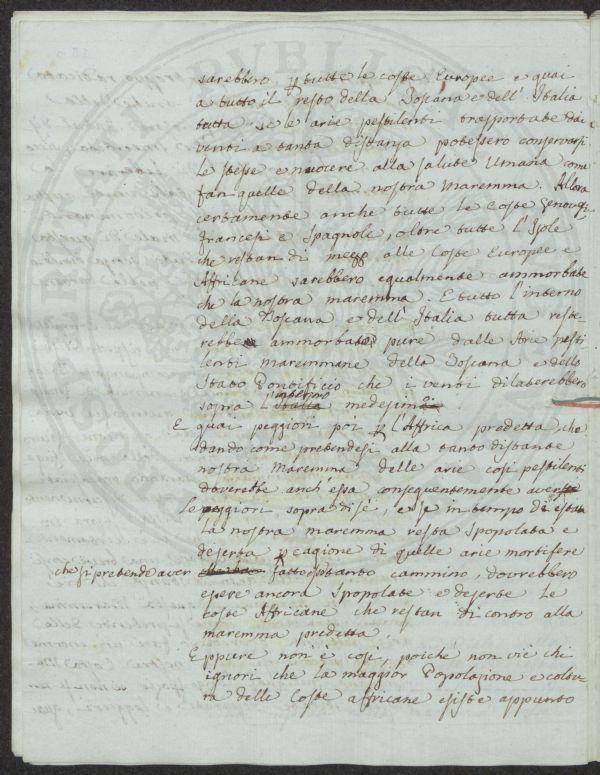 sarebbero p tutte le coste Europee e quai
a tutto il resto della Toscana e dell' Italia
tutta se le arie pestilenti trasportate dai
venti a tanta distanza potessero conservarsi
le stesse e nuocere alla salute Umana come
fan quelle della nostra Maremma. Allora
certamente anche tutte le Coste Genovesi,
francesi e Spagnole, oltre tutte l'Isole
che restan di mezzo alle Coste Europee e
Affricane sarebbero egualmente ammorbate
che la nostra maremma. E tutto l'interno
della Toscana e dell' Italia tutta reste-
rebbe ammorbato pure dalle Arie pesti
lenti maremmane della Toscana e dello
Stato Pontificio che i venti dilaterebbero
interno
sopra l'Italia medesimo.
E quai peggiori poi p l'Affrica predetta, che
dando come pretendesi alla tanto distante
nostra Maremma delle arie così pestilenti
doverebbe anch'essa conseguentemente averse
le peggiori sopra di sé, e se in tempo di estate
la nostra maremma resta spopolata e
deserta p cagione di quelle arie mortifere
che si pretende aver fatto tanto cammino, dovrebbero
essere ancora spopolate e deserte le
coste Affricane che restan di contro alla
maremma predetta.
Eppure non è così, poiché non vi è chi
ignori che la maggior Popolazione e coltu
ra delle Coste affricane esiste appunto